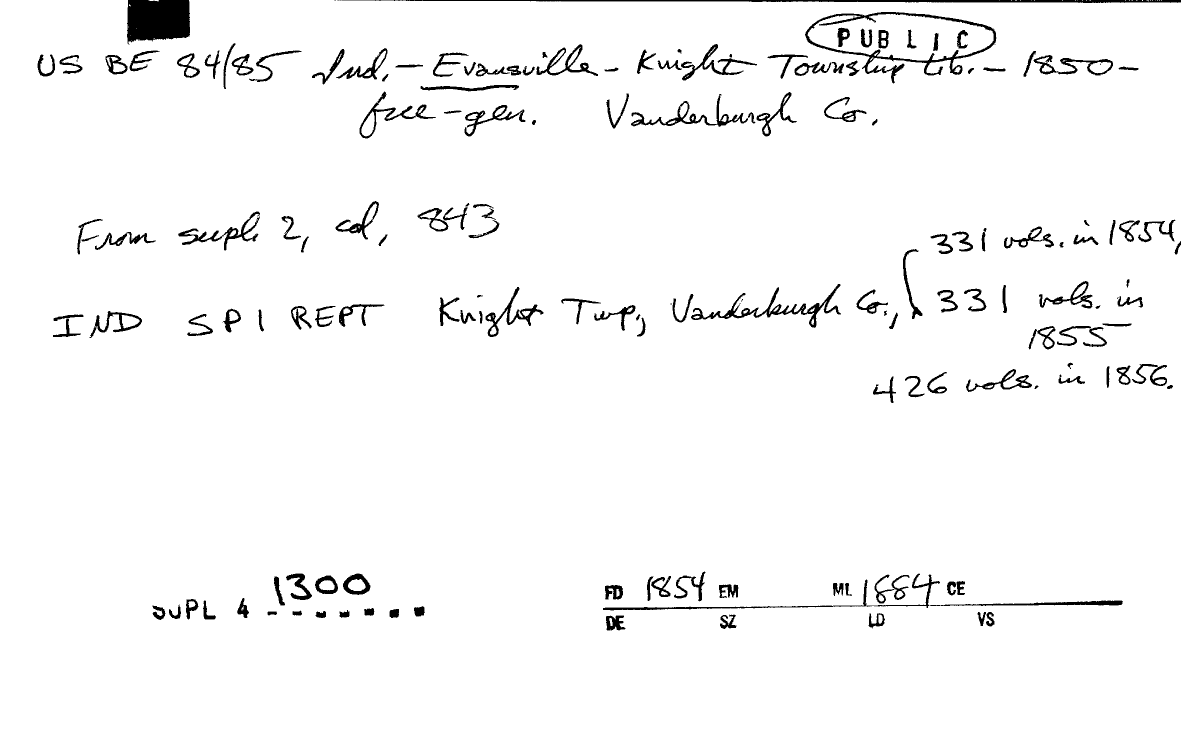 PUBLIC
US BE 84/85 Ind. - Evansville - Knight Township Lib. - 1850 -
free - gen. Vanderburgh Co.
From supl. 2, col, 843
331 vols. in 1854,
IND SPI REPT Knight Twp, Vanderburgh Co., 331 vols. in
1855
426 vols. in 1856.
SUPL 4 1300
FD 1854 EM ML 1884 CE
DE SZ LD VS